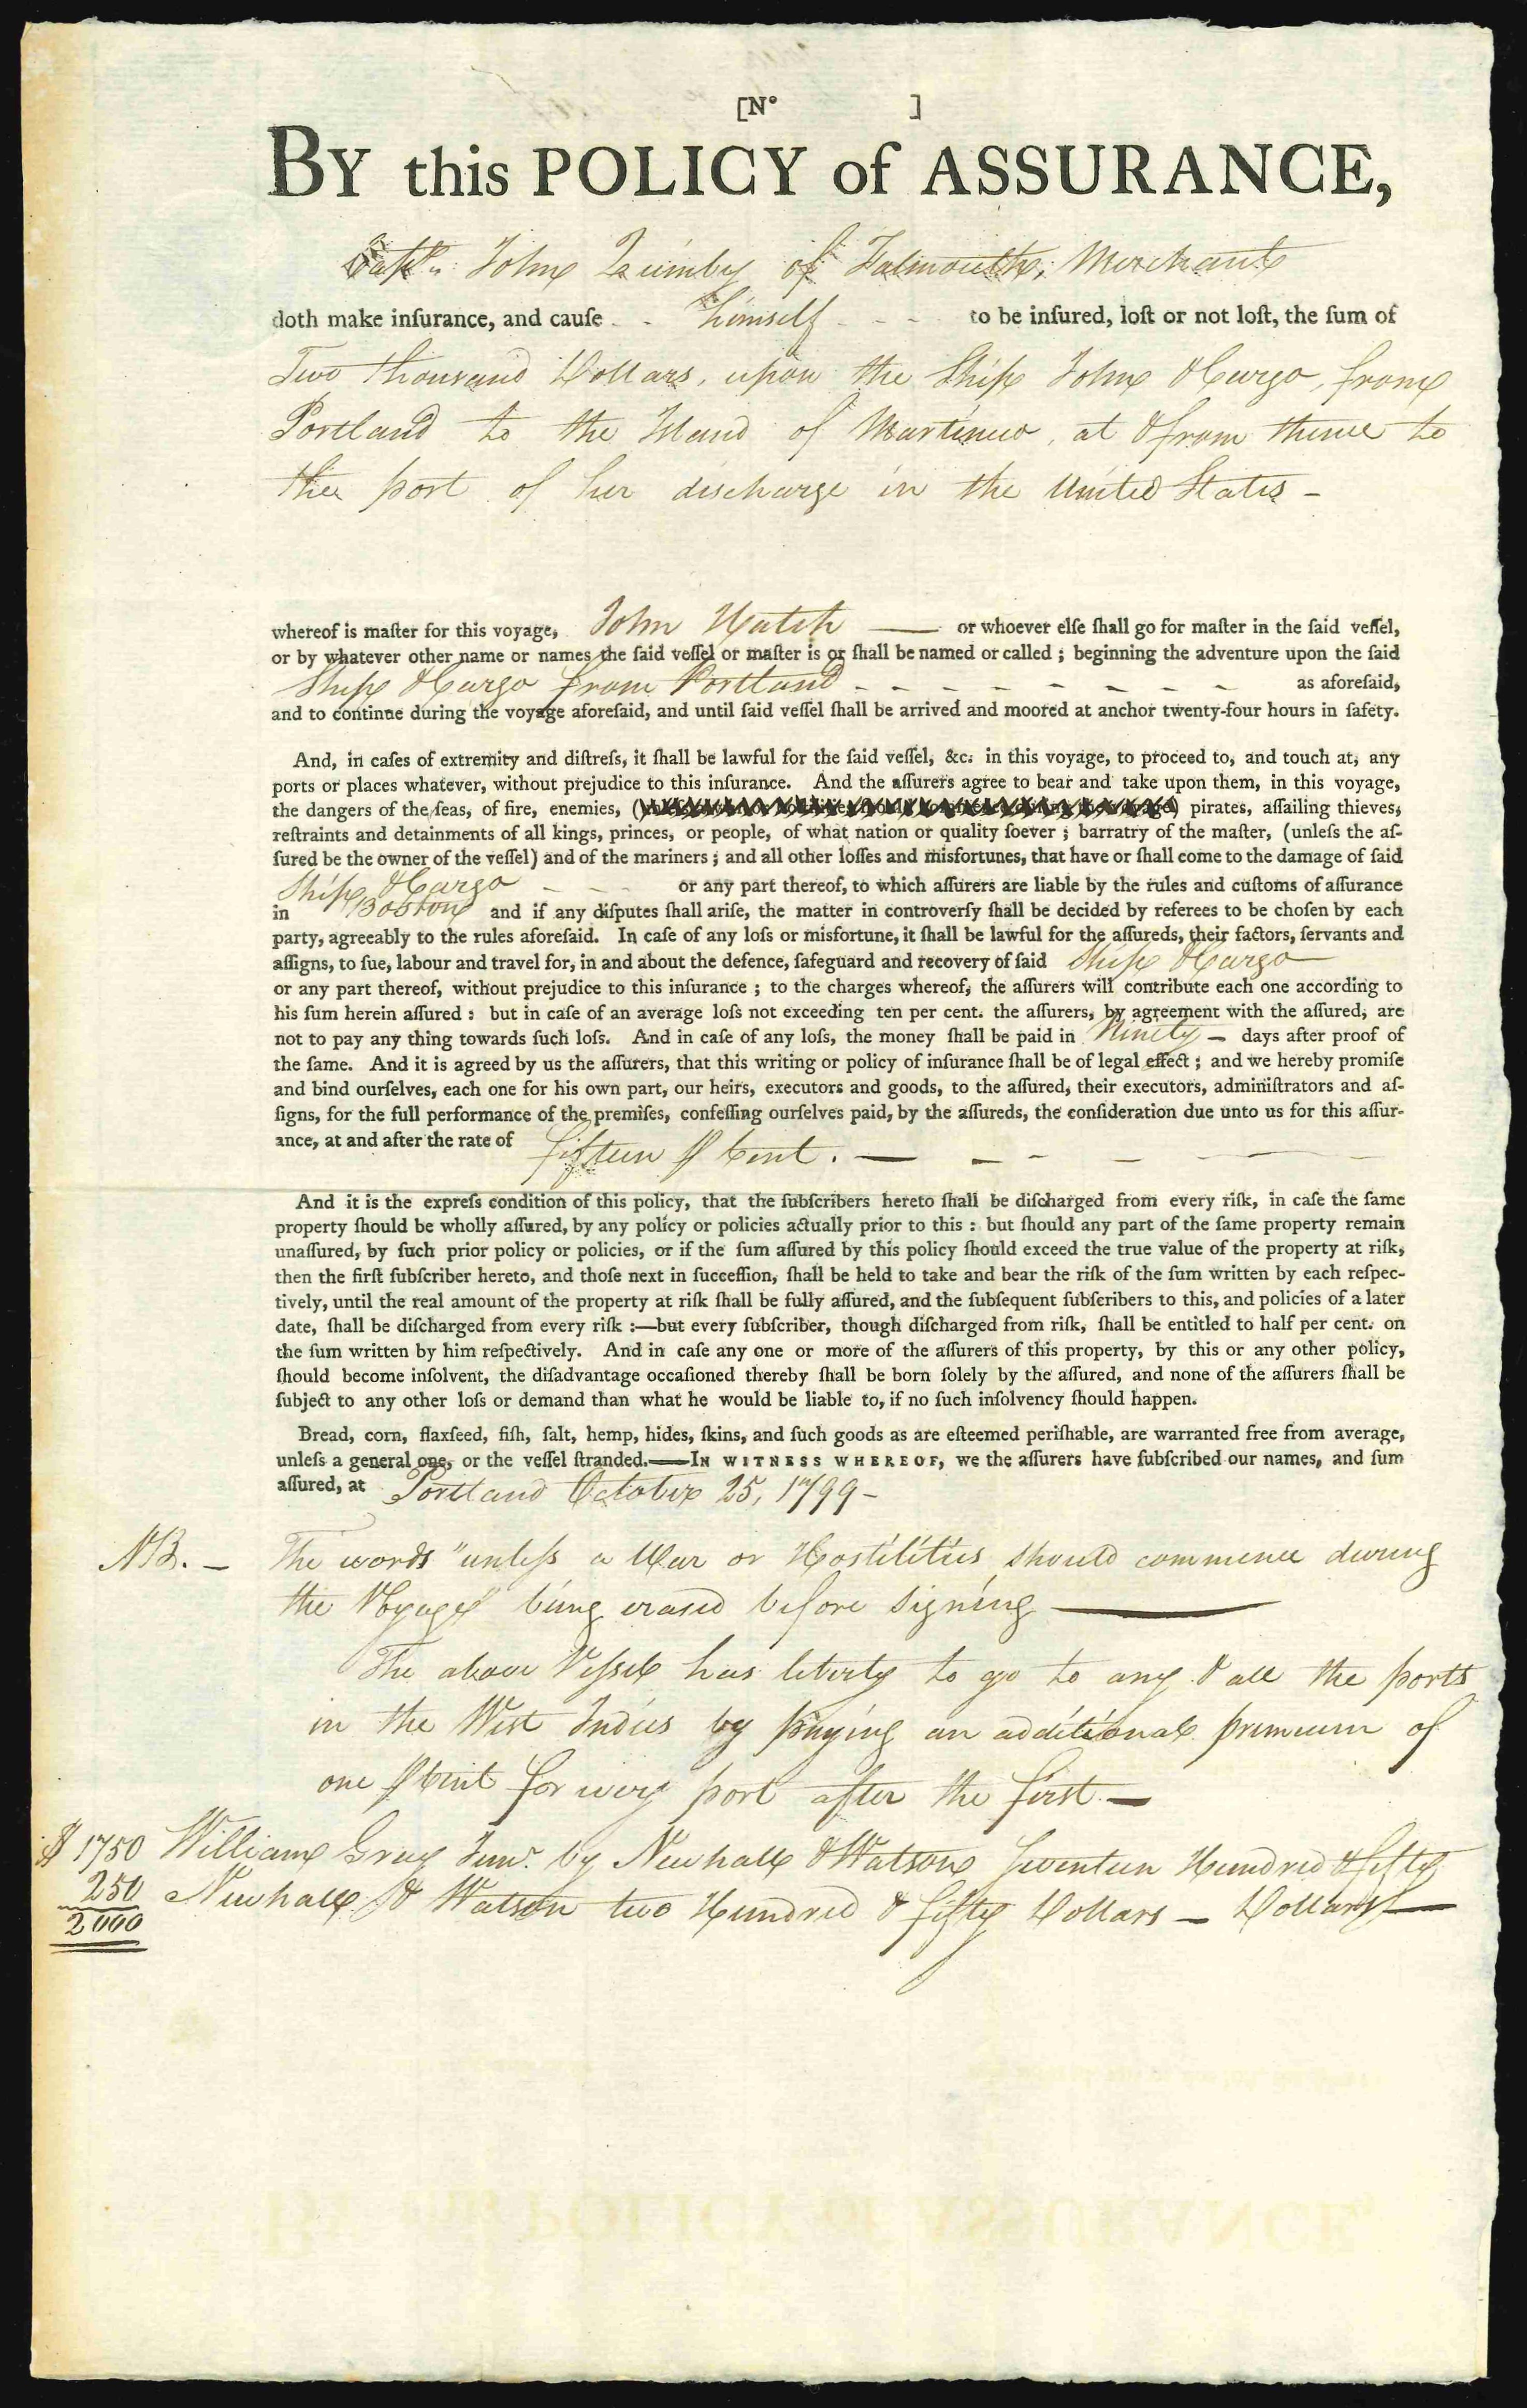 [No ]
BY this POLICY of ASSURANCE,
Capt. John Quimby of Falmouth, Merchant
doth make inſurance, and cauſe - - himself - - - to be inſured, loſt or not loſt, the ſum of
Two thousand Dollars, upon the Ship John & Cargo, from
Portland to the Island of Martinico, at & from thence to
the port of her discharge in the United States -
whereof is maſter for this voyage, John Hatch — or whoever elſe ſhall go for maſter in the ſaid veſſel,
or by whatever other name or names the ſaid veſſel or maſter is or ſhall be named or called ; beginning the adventure upon the ſaid
Ship & Cargo from Portland - - - - - - - - as aforeſaid,
and to continue during the voyage aforeſaid, and until ſaid veſſel ſhall be arrived and moored at anchor twenty-four hours in ſafety.
And, in caſes of extremity and diſtreſs, it ſhall be lawful for the ſaid veſſel, &c. in this voyage, to proceed to, and touch at, any
ports or places whatever, without prejudice to this inſurance. And the aſſurers agree to bear and take upon them, in this voyage,
the dangers of the ſeas, of fire, enemies, ( ) pirates, aſſailing thieves,
reſtraints and detainments of all kings, princes, or people, of what nation or quality ſoever ; barratry of the maſter, (unleſs the aſ-
ſured be the owner of the veſſel) and of the mariners ; and all other loſſes and misfortunes, that have or ſhall come to the damage of ſaid
Ship & Cargo - - - or any part thereof, to which aſſurers are liable by the rules and cuſtoms of aſſurance
in Boston and if any diſputes ſhall ariſe, the matter in controverſy ſhall be decided by referees to be choſen by each
party, agreeably to the rules aforeſaid. In caſe of any loſs or misfortune, it ſhall be lawful for the aſſureds, their factors, ſervants and
aſſigns, to ſue, labour and travel for, in and about the defence, ſafeguard and recovery of ſaid Ship & Cargo —
or any part thereof, without prejudice to this inſurance ; to the charges whereof, the aſſurers will contribute each one according to
his ſum herein aſſured : but in caſe of an average loſs not exceeding ten per cent. the aſſurers, by agreement with the aſſured, are
not to pay any thing towards ſuch loſs. And in caſe of any loſs, the money ſhall be paid in Ninety - days after proof of
the ſame. And it is agreed by us the aſſurers, that this writing or policy of inſurance ſhall be of legal effect ; and we hereby promiſe
and bind ourſelves, each one for his own part, our heirs, executors and goods, to the aſſured, their executors, adminiſtrators and aſ-
ſigns, for the full performance of the premiſes, confeſſing ourſelves paid, by the aſſureds, the conſideration due unto us for this aſſur-
ance, at and after the rate of fifteen ⅌ Cent. — - - - — —
And it is the expreſs condition of this policy, that the ſubſcribers hereto ſhall be diſcharged from every riſk, in caſe the ſame
property ſhould be wholly aſſured, by any policy or policies actually prior to this : but ſhould any part of the ſame property remain
unaſſured, by ſuch prior policy or policies, or if the ſum aſſured by this policy ſhould exceed the true value of the property at riſk,
then the firſt ſubſcriber hereto, and thoſe next in ſucceſſion, ſhall be held to take and bear the riſk of the ſum written by each reſpec-
tively, until the real amount of the property at riſk ſhall be fully aſſured, and the ſubſequent ſubſcribers to this, and policies of a later
date, ſhall be diſcharged from every riſk :—but every ſubſcriber, though diſcharged from riſk, ſhall be entitled to half per cent. on
the ſum written by him reſpectively. And in caſe any one or more of the aſſurers of this property, by this or any other policy,
ſhould become inſolvent, the diſadvantage occaſioned thereby ſhall be born ſolely by the aſſured, and none of the aſſurers ſhall be
ſubject to any other loſs or demand than what he would be liable to, if no ſuch inſolvency ſhould happen.
Bread, corn, flaxſeed, fiſh, ſalt, hemp, hides, ſkins, and ſuch goods as are eſteemed periſhable, are warranted free from average,
unleſs a general one, or the veſſel ſtranded.——IN WITNESS WHEREOF, we the aſſurers have ſubſcribed our names, and ſum
aſſured, at Portland October 25, 1799 -
NB. - The words "unleſs a War or Hostilities should commence during
the Voyage" being erased before signing ——
The above Veſsel has liberty to go to any & all the ports
in the West Indies by paying an additional premium of
one ⅌ Cent for every port after the first. —
$ 1750 William Gray Junr. by Newhall & Watson Seventeen Hundred & fifty
250 Newhall & Watson two Hundred & fifty Dollars — Dollars —
2000